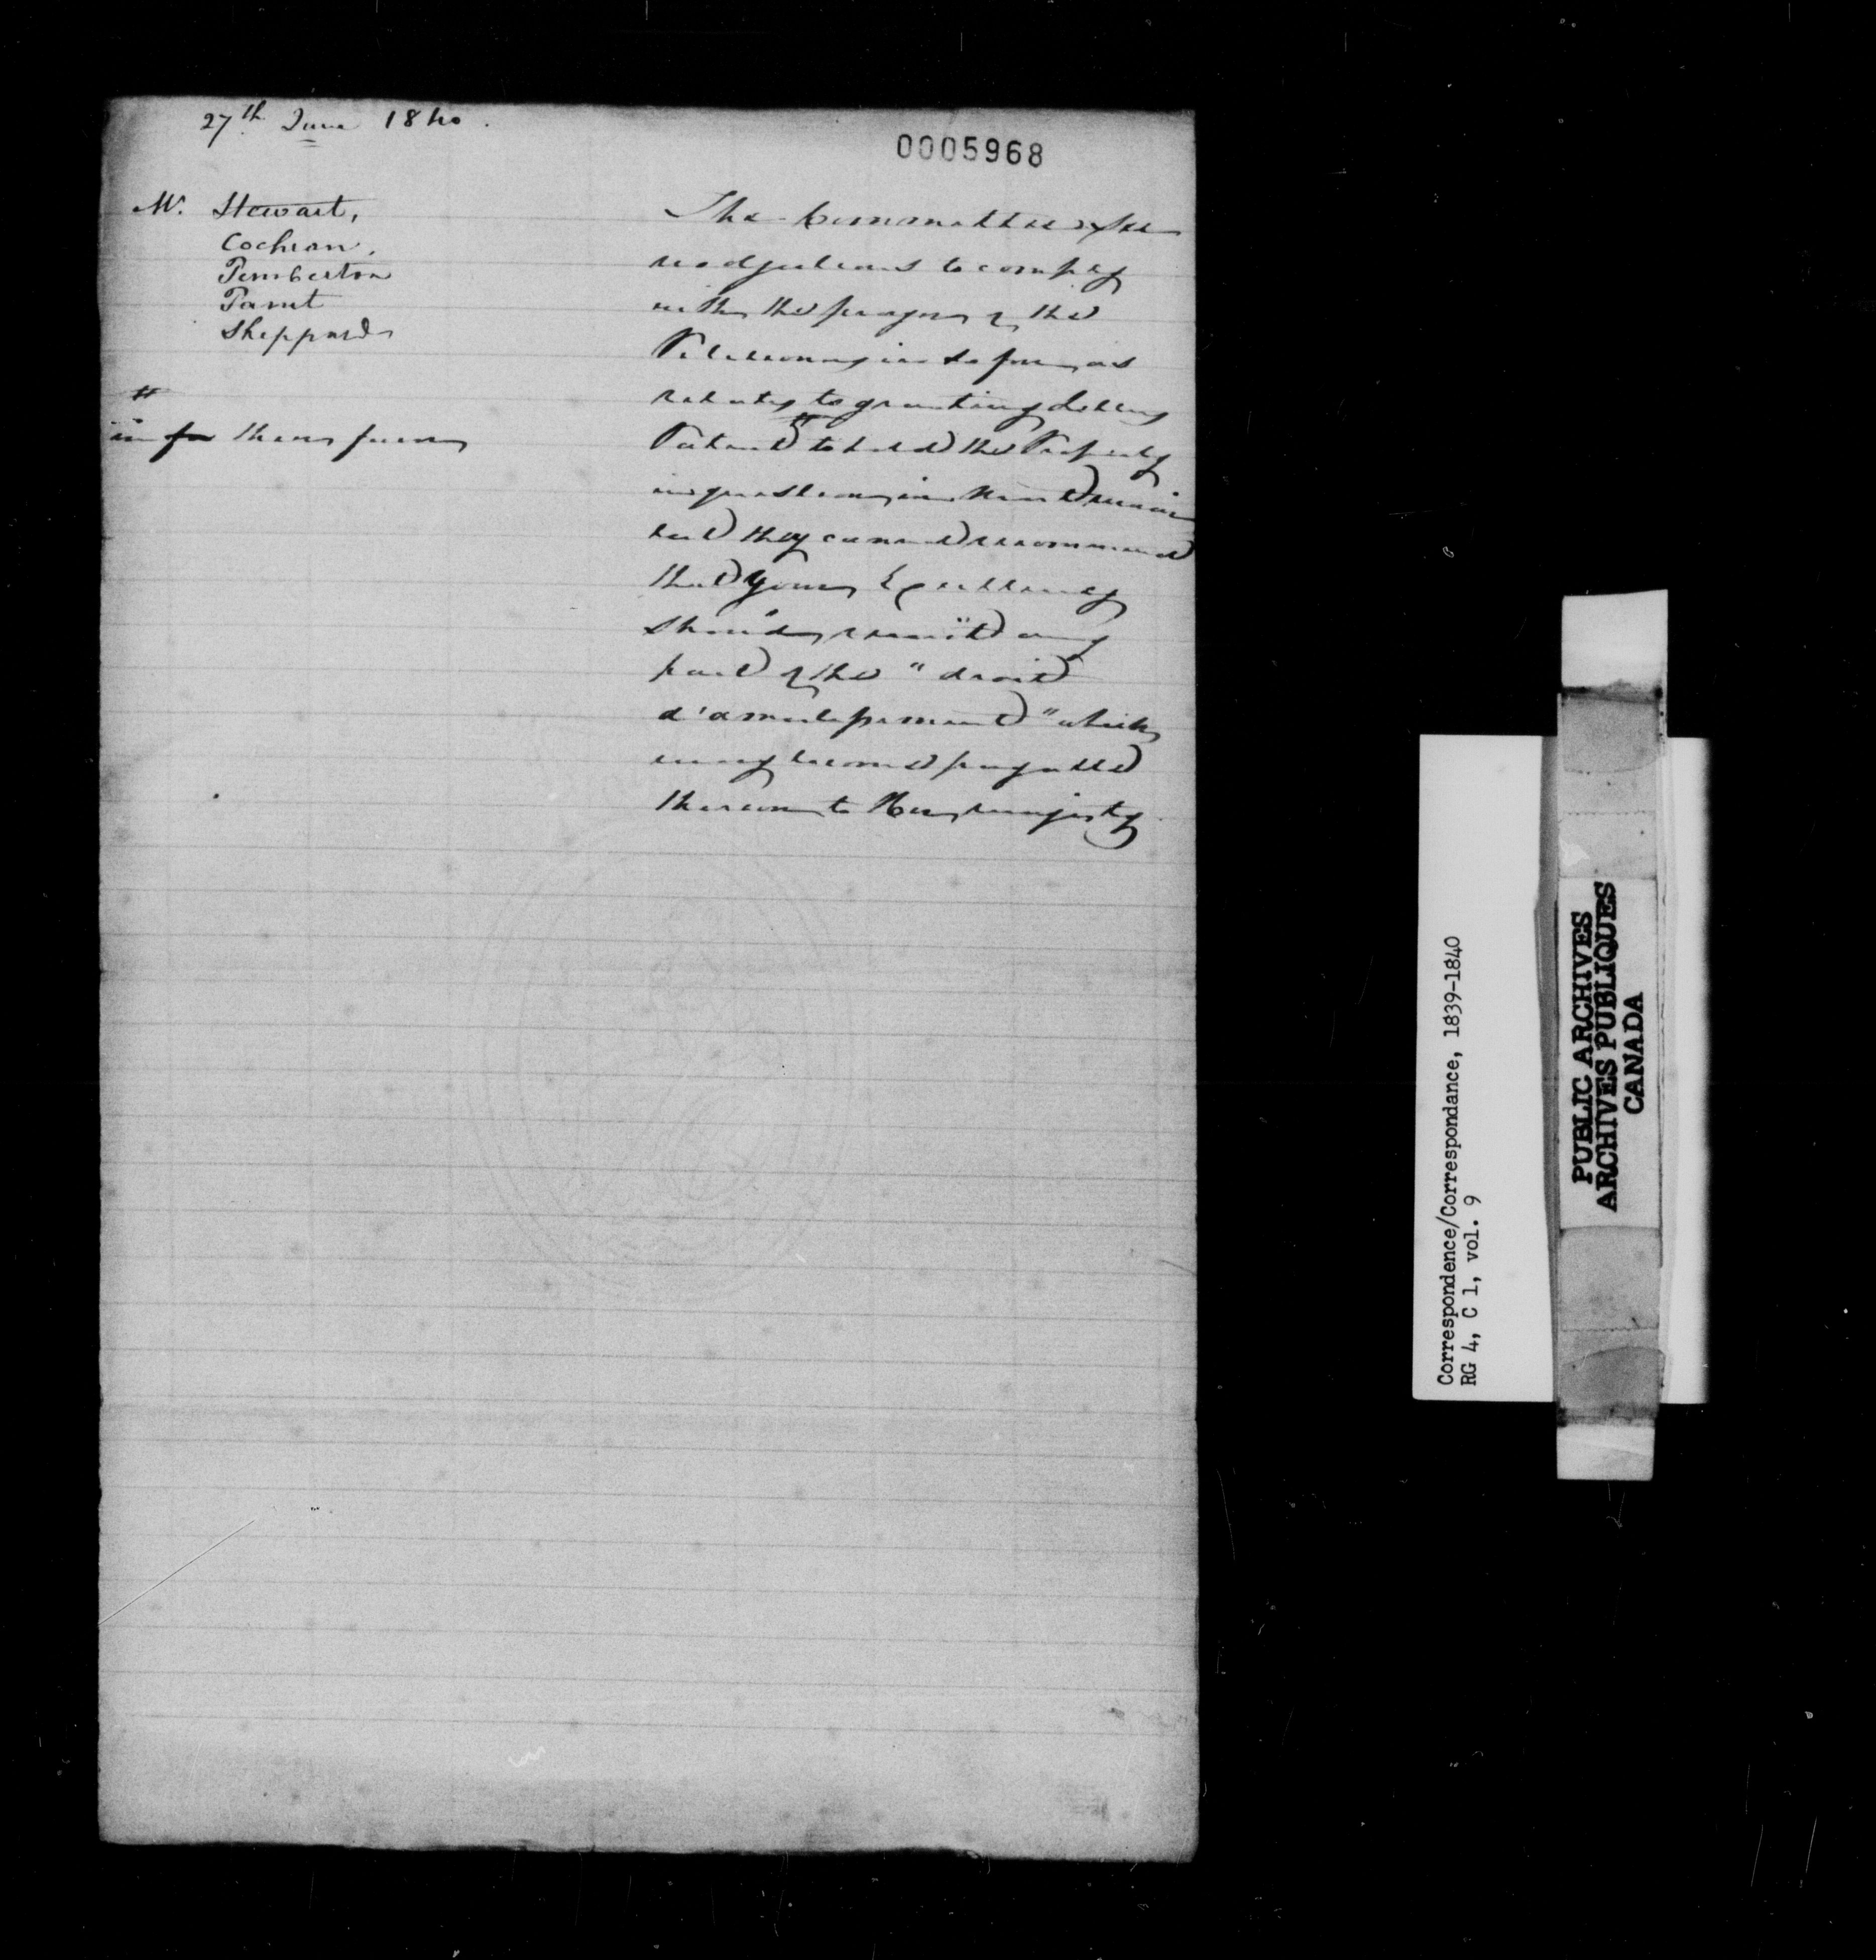 27th June 1840.
0005968
Mr. Stewart,
Cochran,
Pemberton
Panet
Sheppard
#
in the usual form
The Committee see
no objections to comply
with the prayer of the
Petitioners in so far as
relates to granting Letters
Patent # to hold the Property
in question in Mortmain
but they cannot recommend
that Your Excellency
should remit any
part of the "droit
d'amortissement" which
may become payable
thereon to Her Majesty
Correspondence/Correspondance, 1839-1840
RG 4, C 1, vol. 9
PUBLIC ARCHIVES
ARCHIVES PUBLIQUES
CANADA